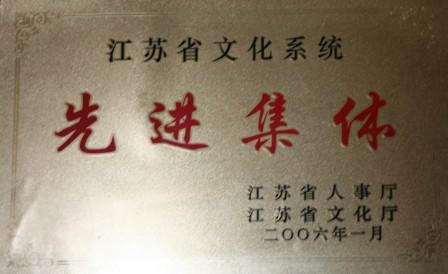 江苏省文化系统
先进集体
江苏省人事厅
江苏省文化厅
二〇〇六年一月